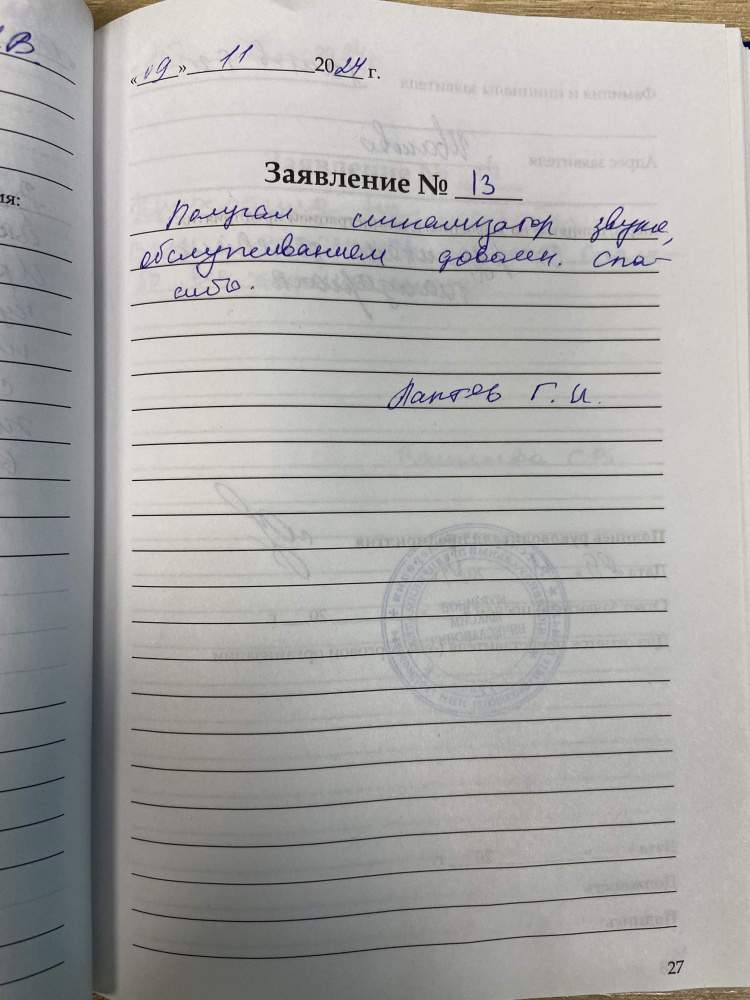 .В.
ия:
«09» 11 2024 г.
Заявление № 13
Получал сигнализатор звука,
обслуживанием доволен. Спа-
сибо.
Лаптев Г. И.
27